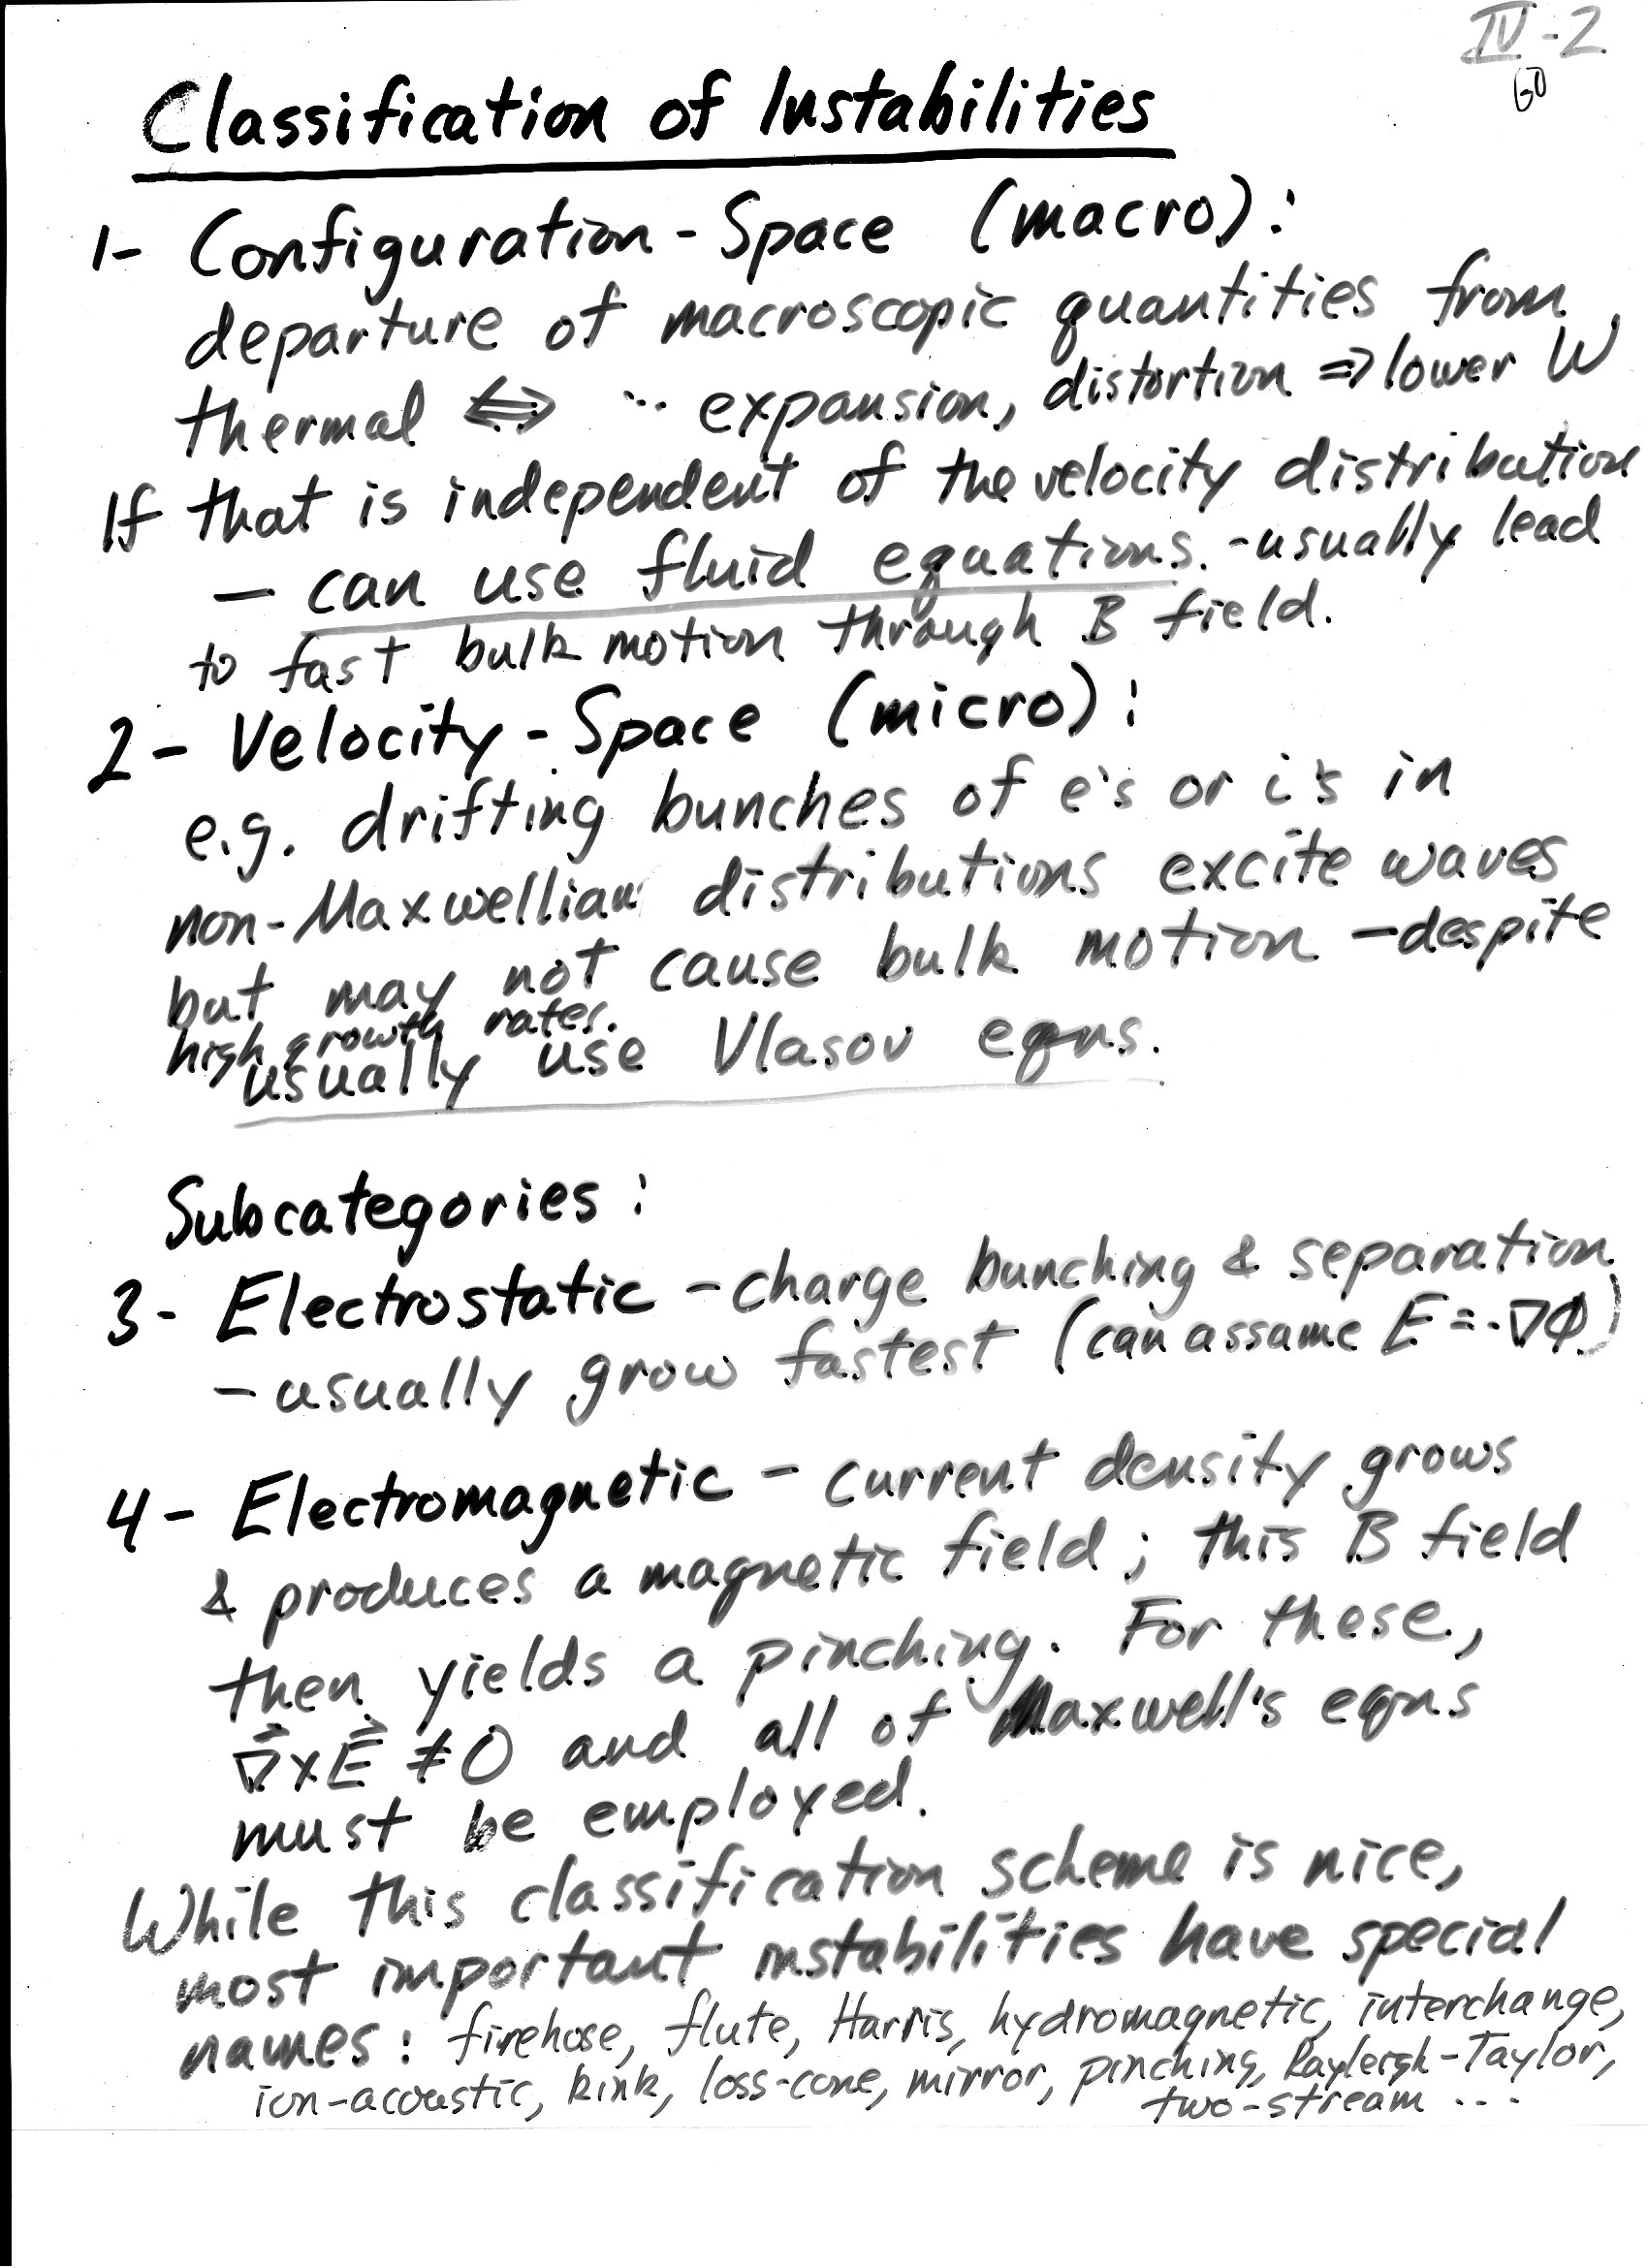 IV-2
60
Classification of Instabilities
1- Configuration-Space (macro):
departure of macroscopic quantities from
thermal ⇔ ∵ expansion, distortion ⇒ lower W
If that is independent of the velocity distribution
— can use fluid equations. -usually lead
to fast bulk motion through B field.
2- Velocity-Space (micro):
e.g. drifting bunches of e's or i's in
non-Maxwellian distributions excite waves
but may not cause bulk motion -despite
high growth rates.
usually use Vlasov eqns.
Subcategories:
3- Electrostatic - charge bunching & separation
- usually grow fastest (can assume E = -∇Φ)
4- Electromagnetic - current density grows
& produces a magnetic field; this B field
then yields a pinching. For these,
∇⃗×E⃗ ≠ 0 and all of Maxwell's eqns
must be employed.
While this classification scheme is nice,
most important instabilities have special
names: firehose, flute, Harris, hydromagnetic, interchange,
ion-acoustic, kink, loss-cone, mirror, pinching, Rayleigh-Taylor,
two-stream ...